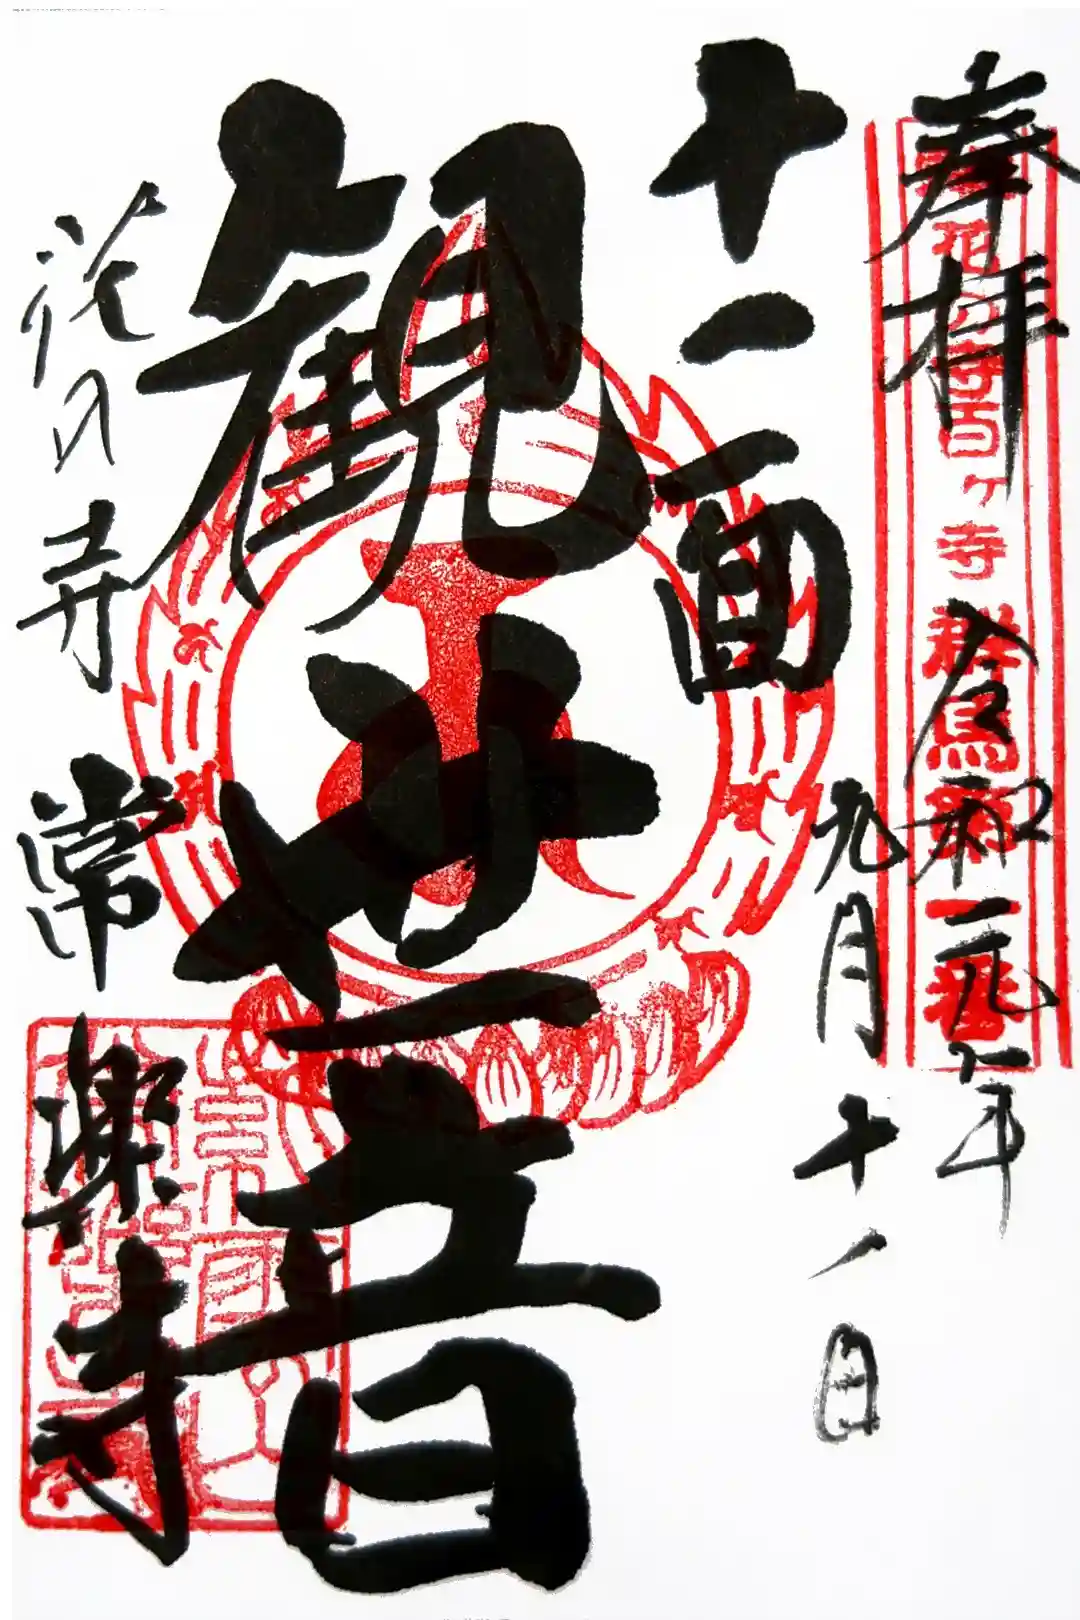 奉拝 令和元年
花の寺百ヶ寺 群馬
九月十一日
十一面
観世音
花の寺 常楽寺